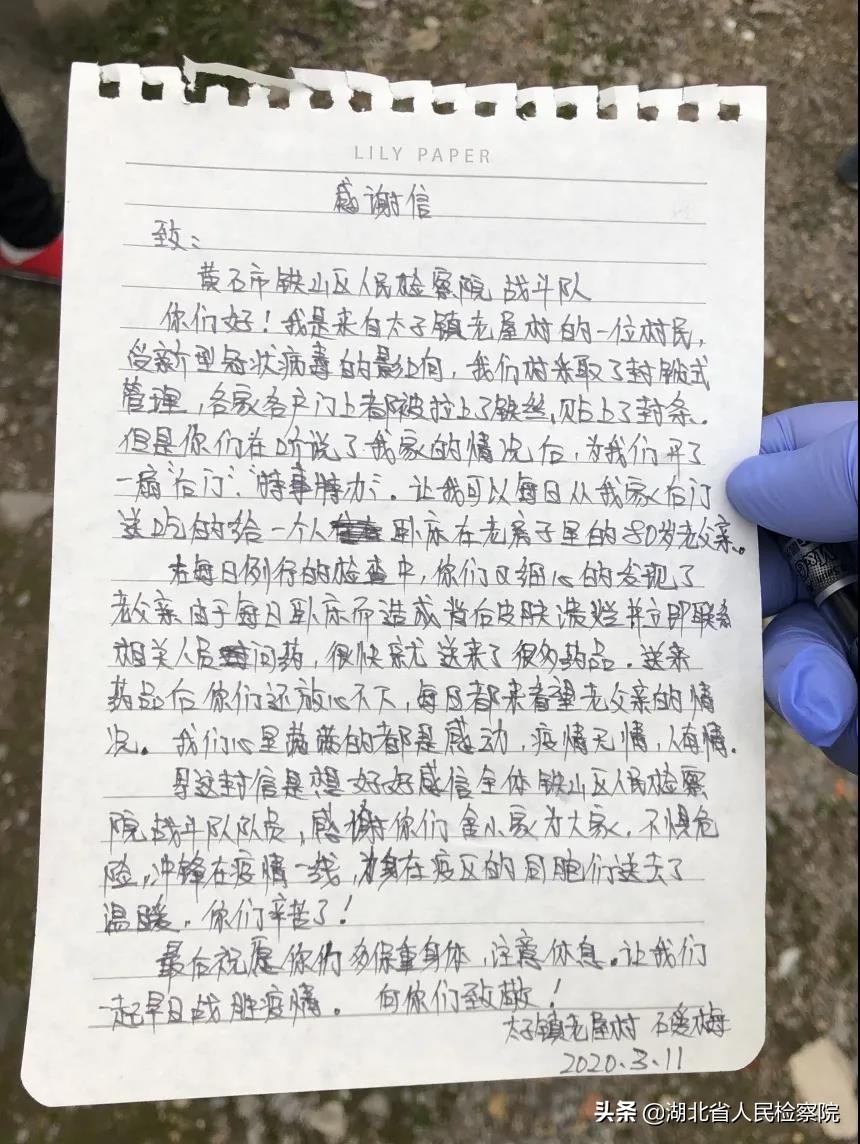 LILY PAPER
感谢信
致：
黄石市铁山区人民检察院 战斗队
你们好！我是来自太子镇老屋村的一位村民，
受新型冠状病毒的影响，我们村采取了封锁式
管理，各家各户门上都被拉上了铁丝，贴上了封条。
但是你们在听说了我家的情况后，为我们开了
一扇“后门”，“特事特办”。让我可以每日从我家后门
送吃的给一个人卧床在老房子里的80岁老父亲。
在每日例行的检查中，你们又细心的发现了
老父亲由于每日卧床而造成背后皮肤溃烂并立即联系
相关人员问药，很快就送来了很多药品。送来
药品后你们还放心不下，每日都来看望老父亲的情
况。我们心里满满的都是感动，疫情无情，人有情。
写这封信是想好好感信全体铁山区人民检察
院战斗队队员，感谢你们舍小家为大家，不惧危
险，冲锋在疫情一线，为身在疫区的同胞们送去了
温暖。你们辛苦了！
最后祝愿你们多保重身体，注意休息。让我们
一起早日战胜疫情。 向你们致敬！
太子镇老屋村 石爱梅
2020.3.11
头条 @湖北省人民检察院